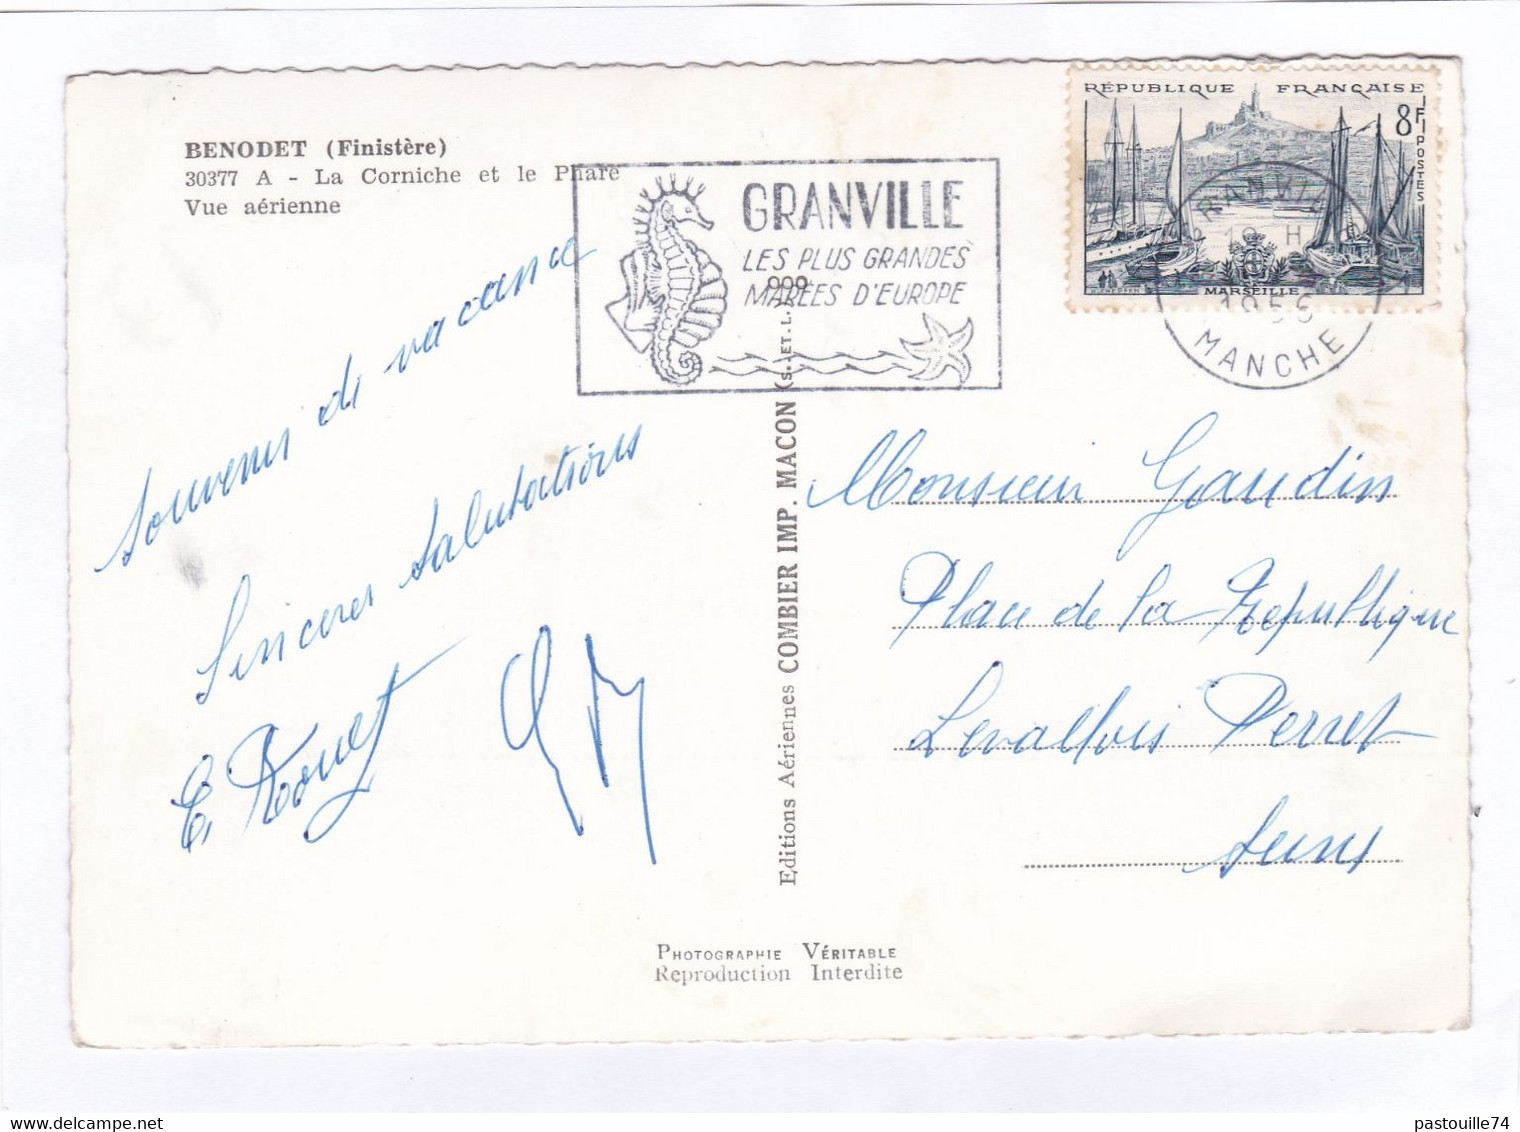 BENODET (Finistère)
30377 A - La Corniche et le Phare
Vue aérienne
GRANVILLE
LES PLUS GRANDES
MARÉES D'EUROPE
RÉPUBLIQUE FRANÇAISE
8F
POSTES
MARSEILLE
RANVIL
1956
MANCHE
Souvenir de vacance
Sinceres Salutations
Editions Aériennes COMBIER IMP. MACON (S. ET. L.)
Monsieur Gaudin
Place de la Republique
Levallois Perret
Seine
PHOTOGRAPHIE VÉRITABLE
Reproduction Interdite
pastouille74